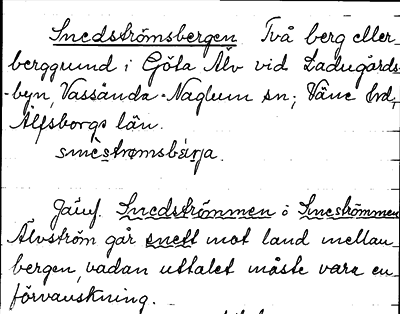 Snedströmsbergen Två berg eller
berggrund i Göta Älv vid Ladugårds-
-byn, Vassända-Naglum sn; Väne hd,
Älfsborgs län.
snèstrømsbärja.
Jämf. Snedströmmen o Snesströmmen
Älvström går snett mot land mellan
bergen, vadan uttalet måste vara en
förvanskning.